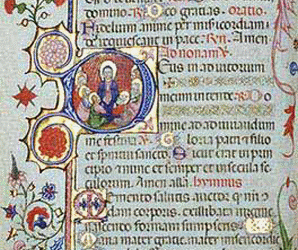 domino. R. Deo gratias. oratio.
Fidelium anime per misericordiam
dei requiescant in pace. R. Amen
Ad nonam
Deus in adiutorium
meum intende. R. Do
mine ad adiuvandum
me festina. Gloria patri et filio
et spiritui sancto. Sicut erat in prin
cipio et nunc et semper et in secula se
culorum. Amen. alla. hymnus
Memento salutis auctor qd' nri q'n
dam corporis. ex illibata virgine
nascendo formam sumpseris.
Maria mater gratie, mater misericordie